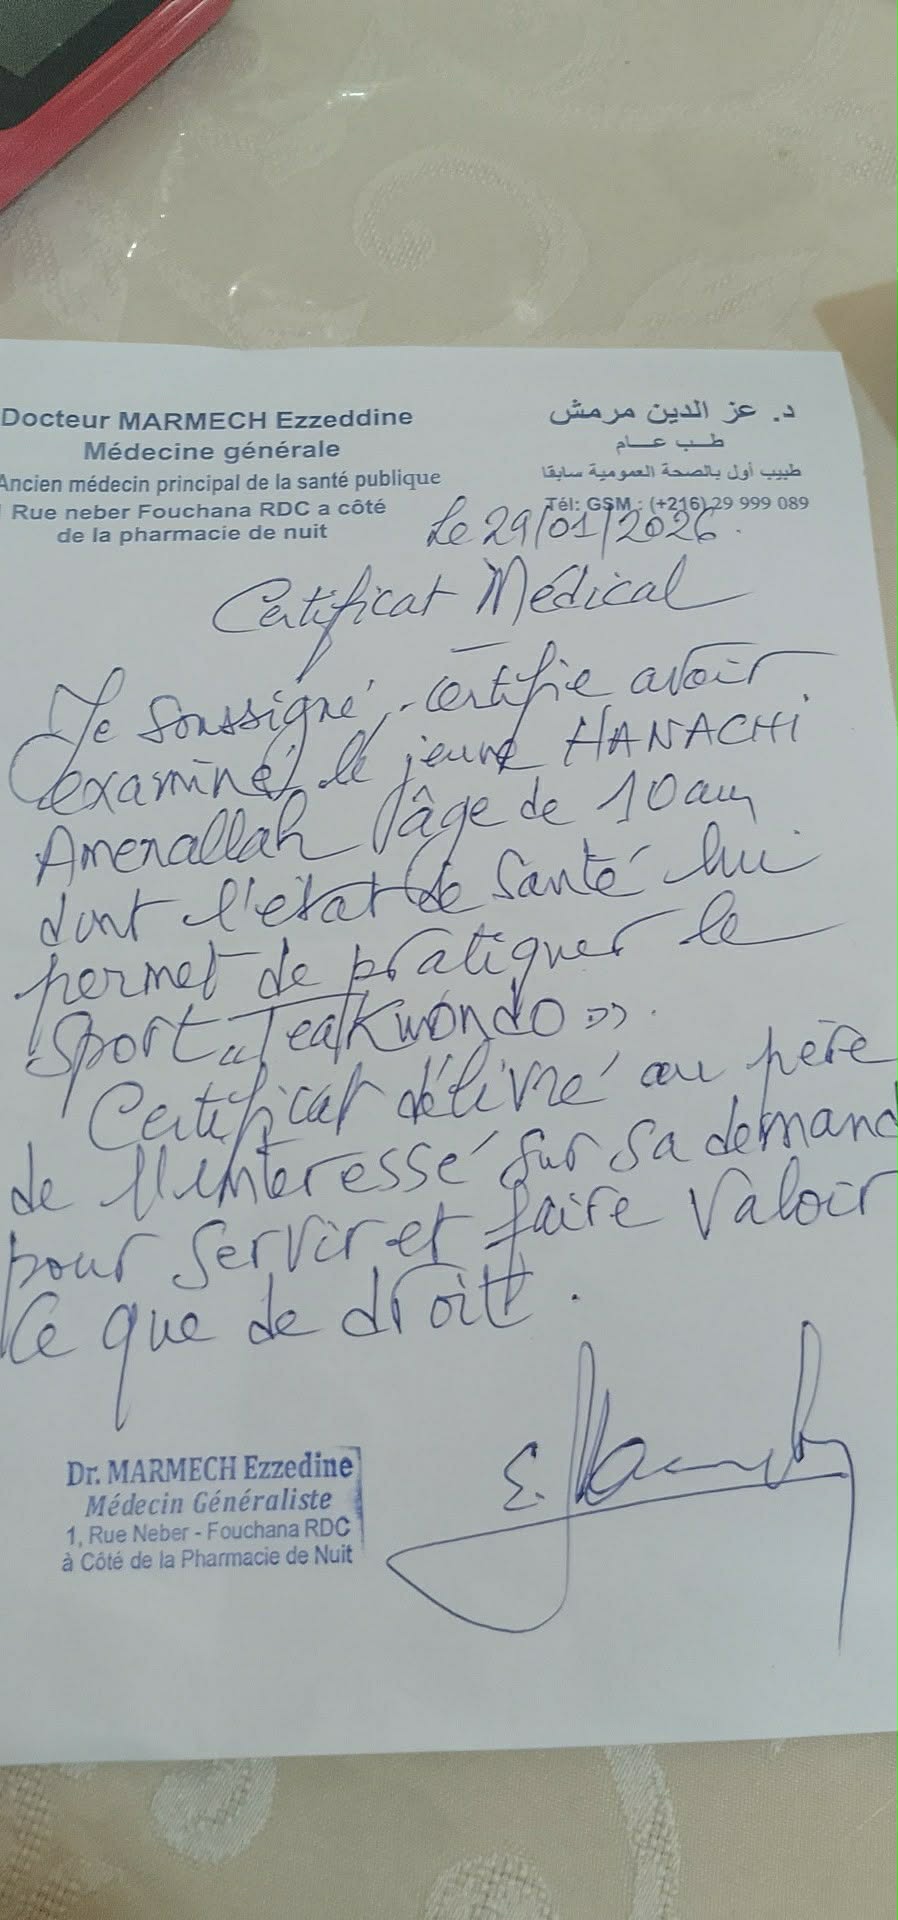 Docteur MARMECH Ezzeddine
Médecine générale
Ancien médecin principal de la santé publique
Rue neber Fouchana RDC a côté
de la pharmacie de nuit
د. عز الدين مرمش
طب عام
طبيب أول بالصحة العمومية سابقا
Tél: GSM : (+216) 29 999 089
Le 29/01/2026.
Certificat Médical
Je soussigné, certifie avoir
examiné le jeune HANACHI
Amenallah âge de 10 ans
dont l'état de santé lui
permet de pratiquer le
Sport "Teakwondo».
Certificat délivré au père
de l'interessé sur sa demand
pour servir et faire valoir
ce que de droit.
Dr. MARMECH Ezzedine
Médecin Généraliste
1, Rue Neber - Fouchana RDC
à Côté de la Pharmacie de Nuit